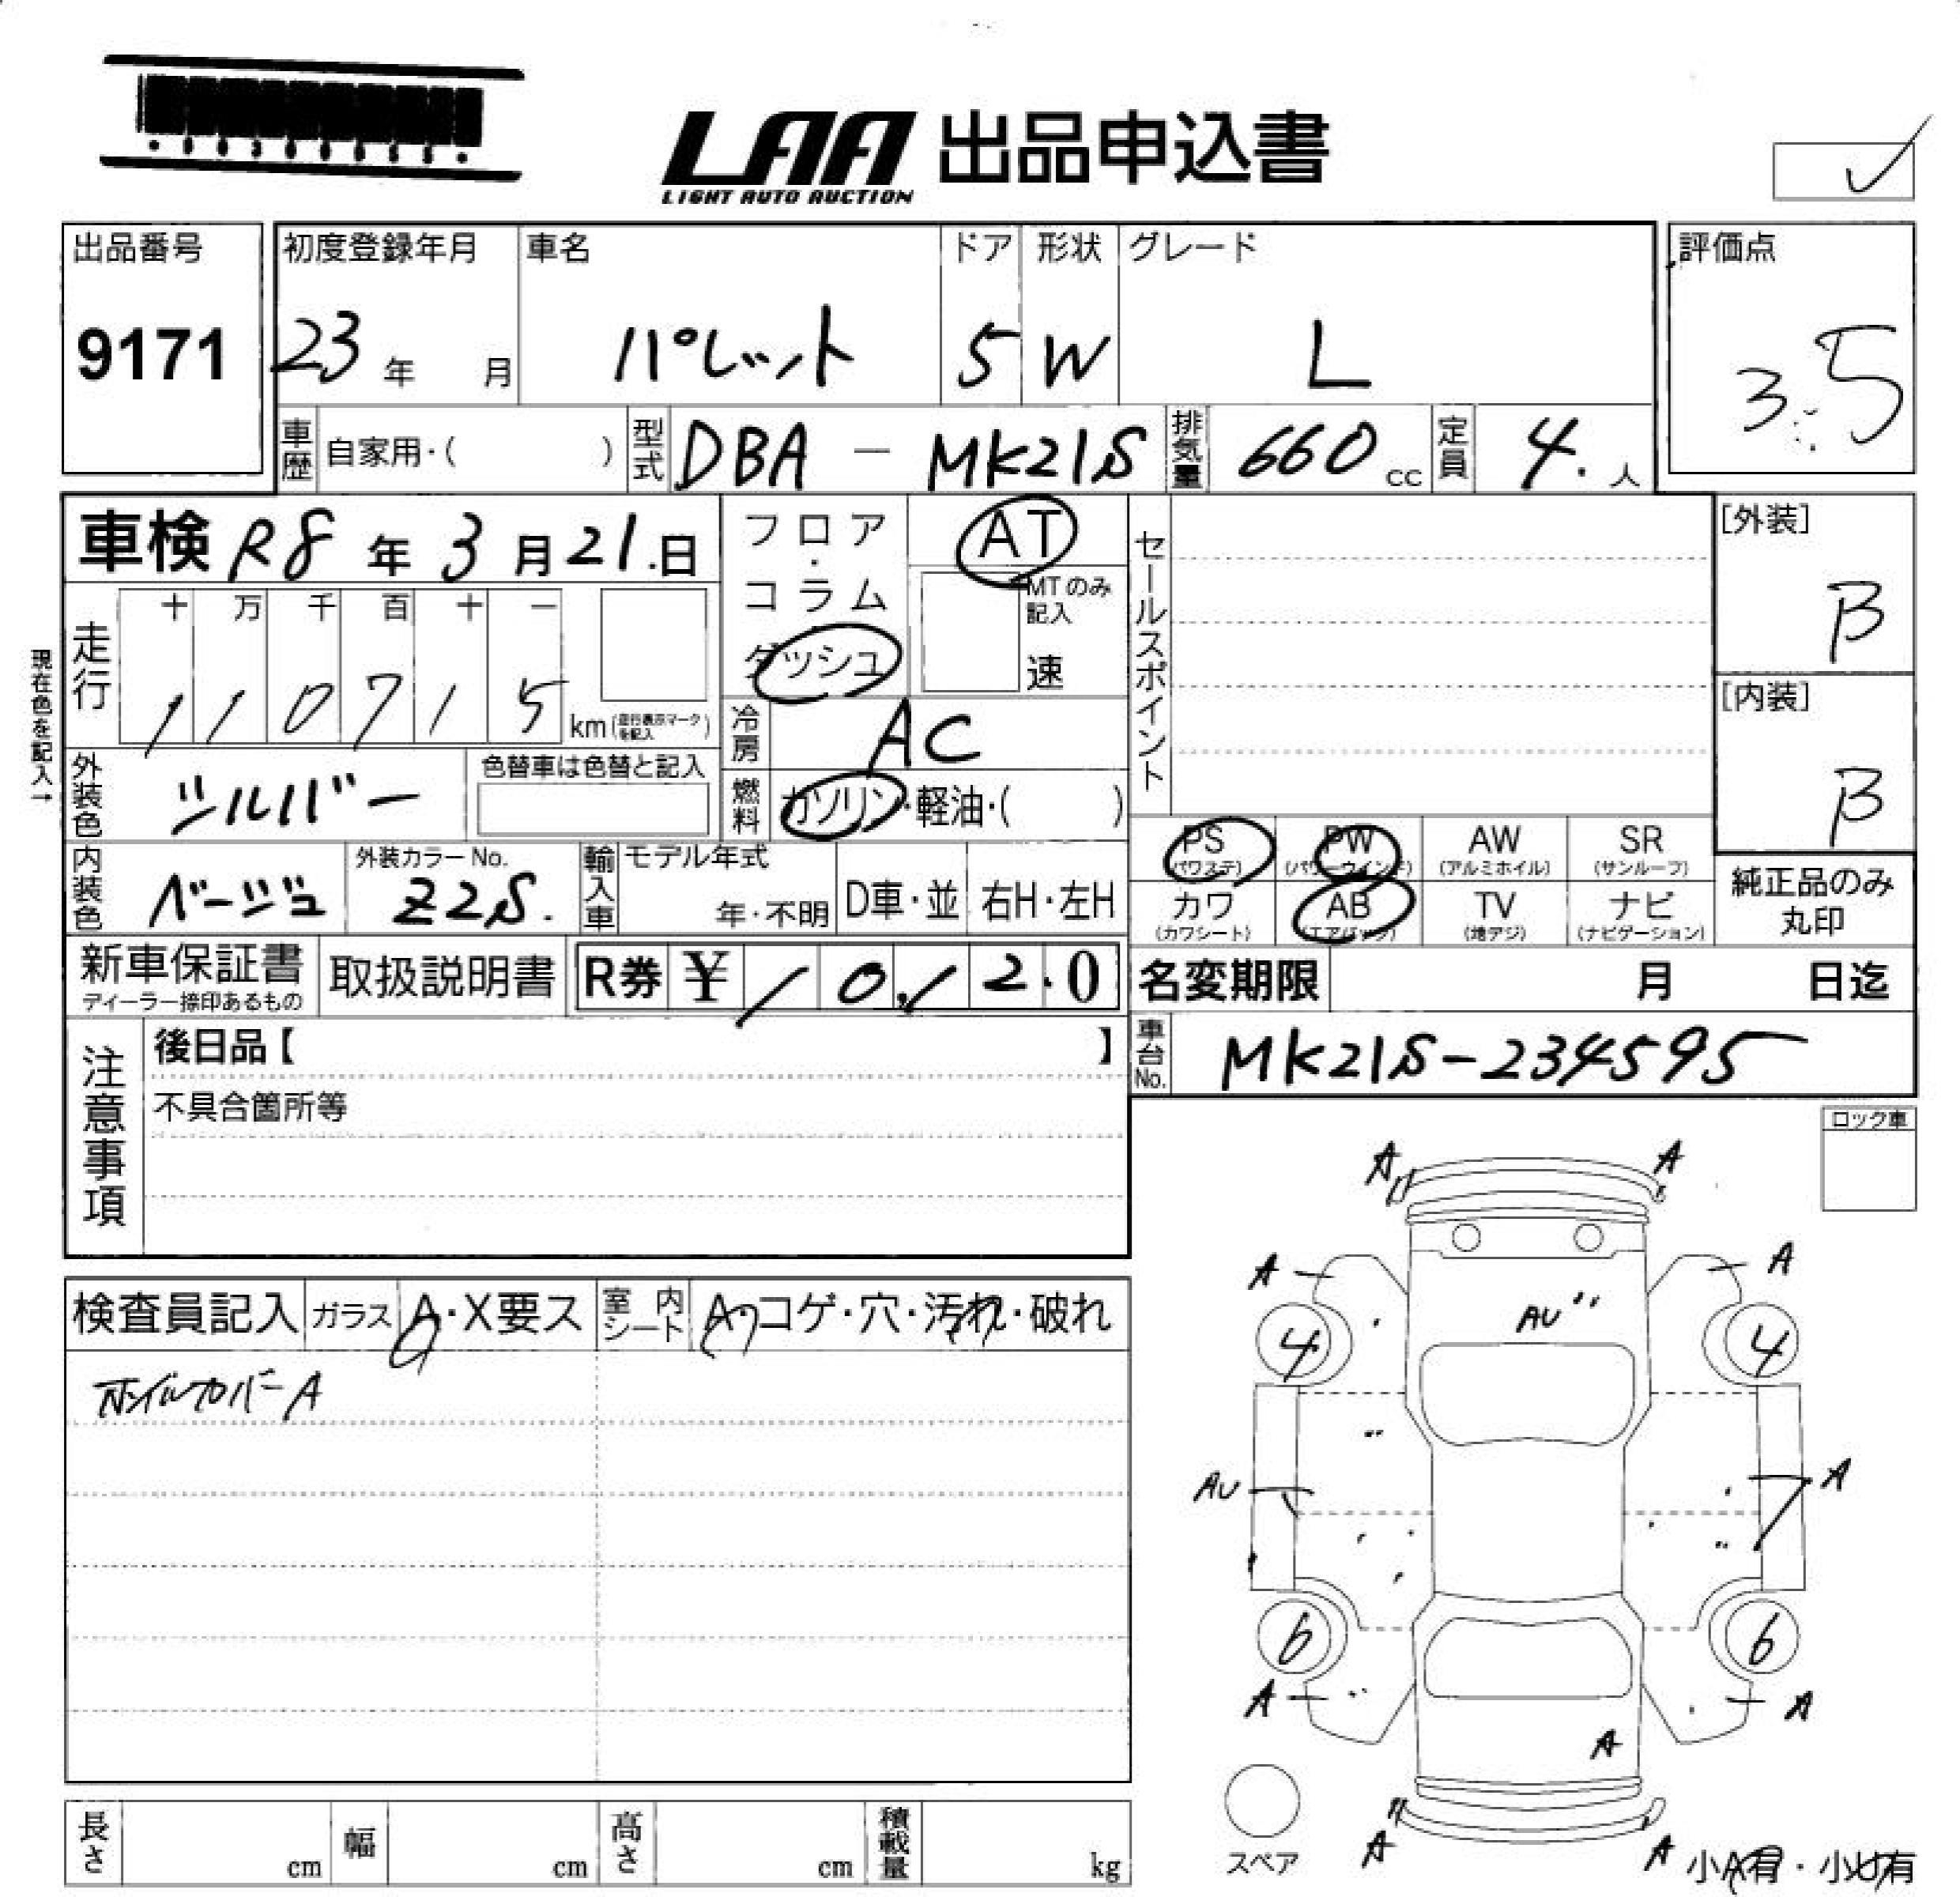 LAA 出品申込書
LIGHT AUTO AUCTION
出品番号
9171
初度登録年月
23年 月
車名
パレット
ドア
5
形状
W
グレード
L
評価点
3.5
車歴 自家用・( )
型式 DBA - MK21S
排気量 660 cc
定員 4. 人
車検 R8年 3月 21.日
フロア・コラム
ダッシュ
AT
MTのみ記入
速
セールスポイント
[外装]
B
[内装]
B
現在色を記入→
走行
十 万 千 百 十 一
1 1 0 7 1 5 km(走行表示マークを記入)
冷房 AC
外装色 シルバー
色替車は色替と記入
燃料 ガソリン・軽油・( )
内装色 ベージュ
外装カラーNo.
Z2S.
輸入車
モデル年式
年・不明
D車・並
右H・左H
PS (パワステ)
PW (パワーウインド)
AW (アルミホイル)
SR (サンルーフ)
カワ (カワシート)
AB (エアバック)
TV (地デジ)
ナビ (ナビゲーション)
純正品のみ丸印
新車保証書
ディーラー捺印あるもの
取扱説明書
R券 ¥ 10,120
名変期限 月 日迄
車台No. MK21S-234595
注意事項
後日品【 】
不具合箇所等
ロック車
検査員記入
ガラス A・X要ス
室内シート A・コゲ・穴・汚れ・破れ
ホイルカバーA
A A
A A
AU"
4 4
AU A
6 6
A A
A
A A
スペア
小A有・小U有
長さ cm
幅 cm
高さ cm
積載量 kg